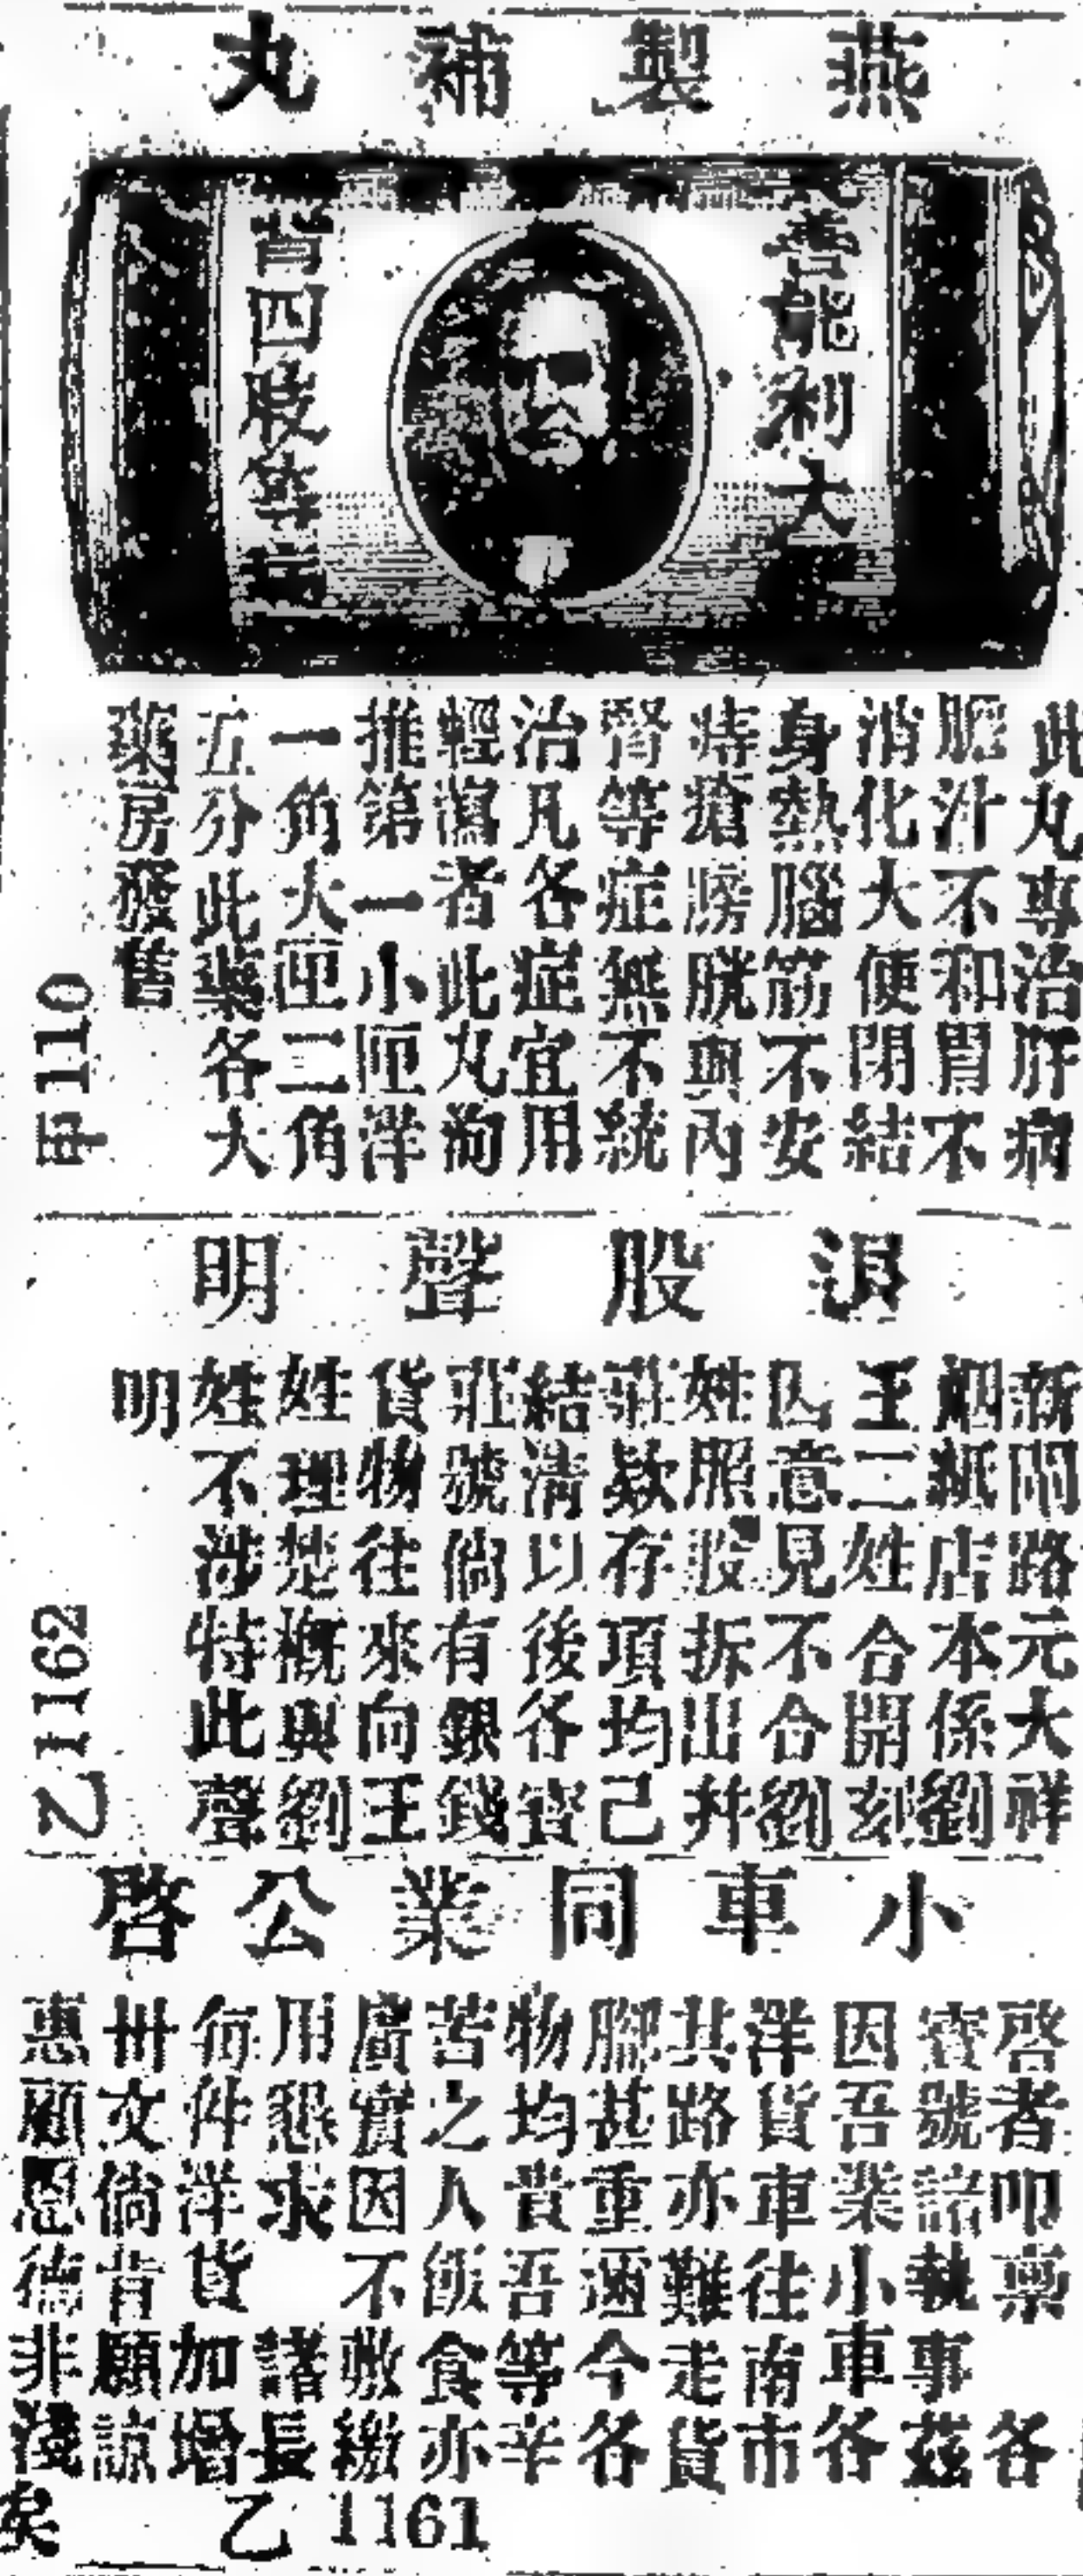 燕製補丸
善能利大
背四股等
此丸專治肝病
膽汁不和胃不
消化大便閉結
身熱腦筋不安
痔瘡膀胱與內
腎等症無不統
治凡各症宜用
輕瀉者此丸尚
推第一小匣洋
一角大匣二角
五分此藥各大
藥房發售
甲110
退股聲明
新閘路元大祥
烟紙店本係劉
王二姓合開刻
因意見不合劉
姓照股拆出幷
莊欵存項均己
結清以後各寶
莊號倘有銀錢
貨物往來向王
姓理楚槪與劉
姓不涉特此聲
明
乙1162
小車同業公啓
啓者叩禀 各
寶號諸執事茲
因吾業小車各
洋貨車往南市
其路亦難走貨
脚甚重邇今各
物均貴吾等辛
苦之人飯食亦
廣實因不敷繳
用懇求 諸長
每件洋貨加增
卅文倘肯願諒
惠顧恩德非淺
矣
乙1161